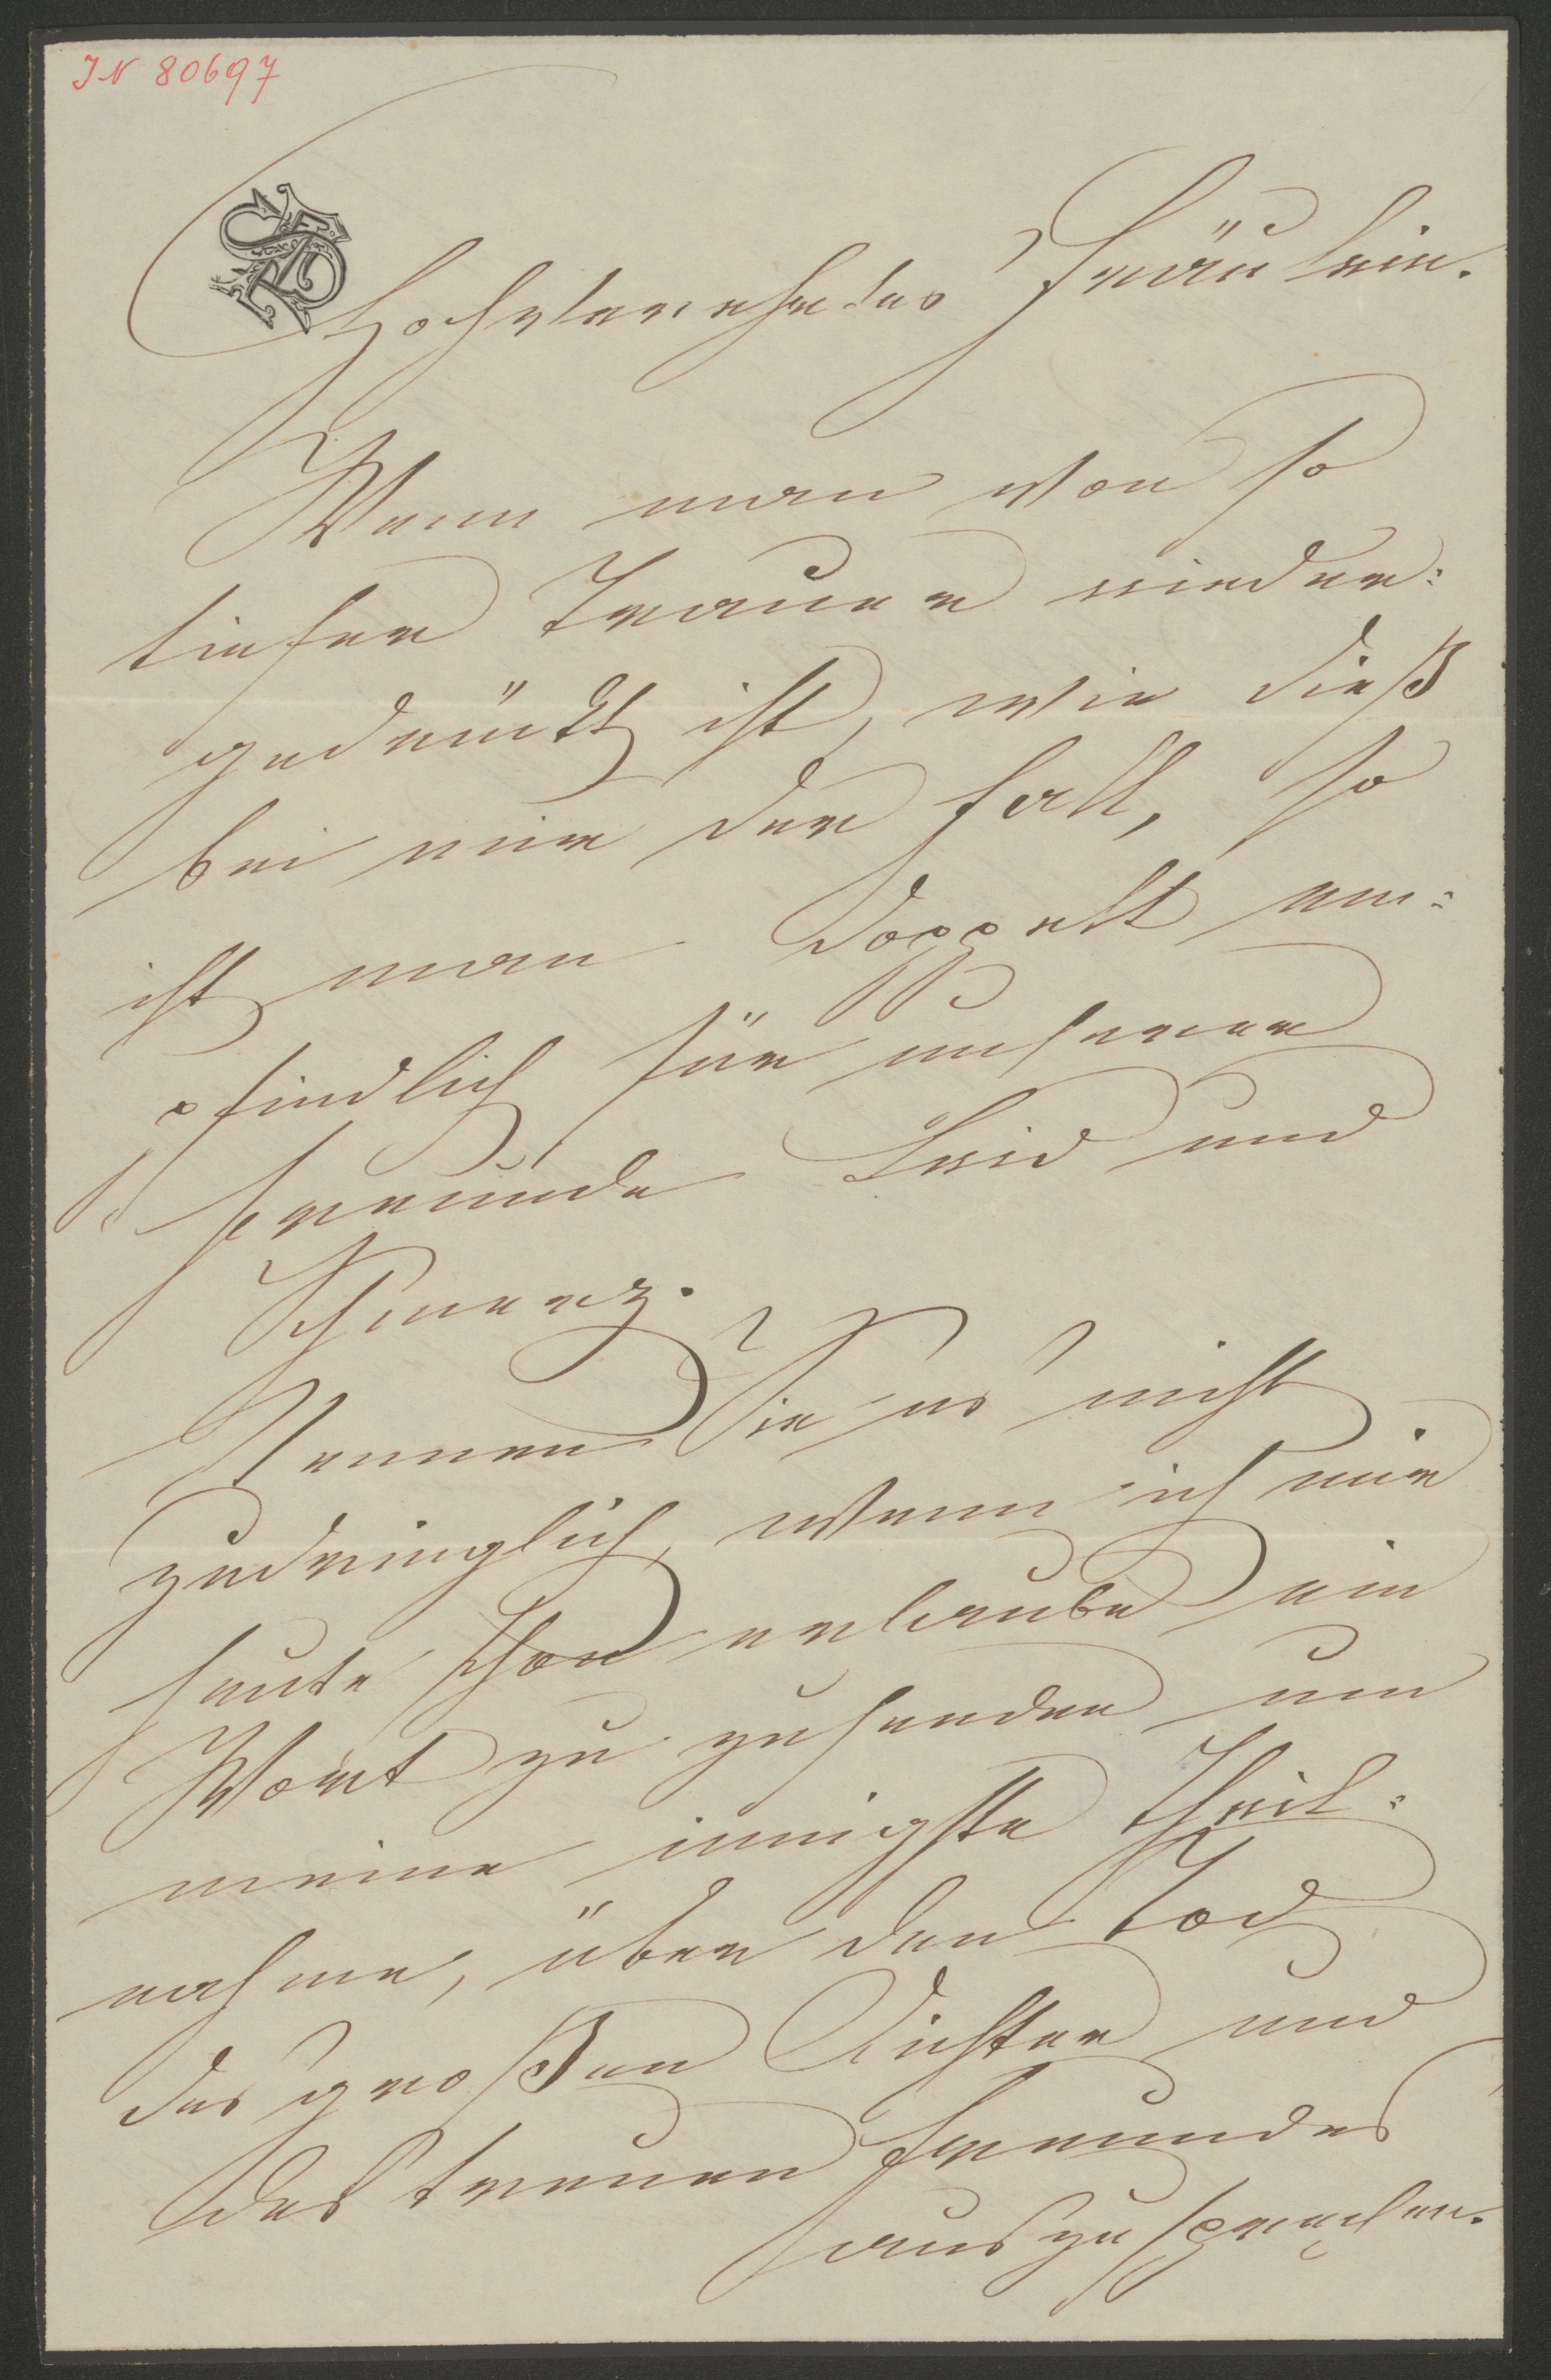 IN 80697
Hochverehrtes Fräulein.
Wenn man von so
tiefer Trauer nieder:
gedrückt ist, wie dieß
bei mir der Fall, so
ist man doppelt em:
pfindlich für unserer
Freunde Leid und
Schmerz.
Nennen Sie es nicht
zudringlich, wenn ich mir
heute schon erlaube ein
Wort zu zusenden um
meine innigste Theil:
nahme, über den Tod
des großen Dichter und
des treuen Freundes
auszusprechen.